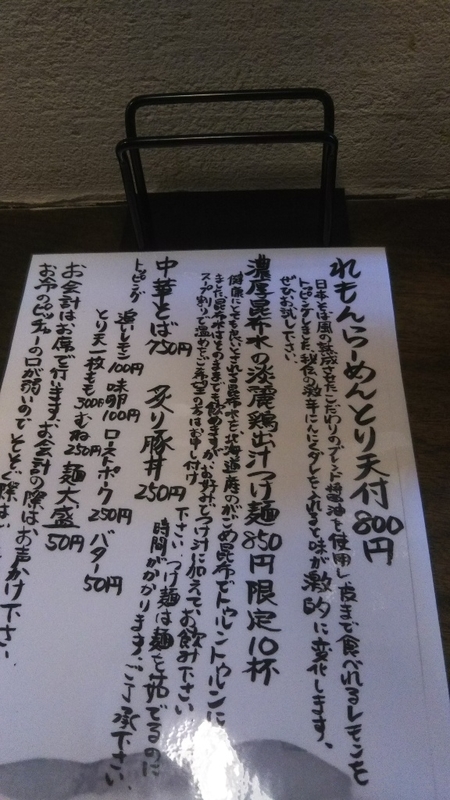 れもんらーめんとり天付 800円
日本そば風の熟成させたこだわりのブレンド醤油を使用し、皮まで食べれるレモンを
トッピングしました。秘伝の激辛にんにくダレを入れると味が激的に変化します。
ぜひお試し下さい。
濃厚昆布水の淡麗鶏出汁つけ麺 850円 限定10杯
健康にとても良いとされる昆布水を、北海道産のがごめ昆布でトゥルントゥルンに
きた昆布水はそのままでも飲めますが、お好みでつけ汁に加えて、お飲み下さい
スープ割りで温めをご希望の方はお申し付け下さい。
つけ麺は麺を茹でるのに
時間がかかります。ご了承下さい。
中華そば 750円 炙り豚丼 250円
トッピング
追いレモン 100円 味卵 100円 ローストポーク 250円 バター 50円
とり天一枚もも 300円 むね 250円 麺大盛 50円
お会計はお席で行います。お会計の際はお声かけ下さい。
お冷のピッチャーの口が弱いので、そそぐ際は